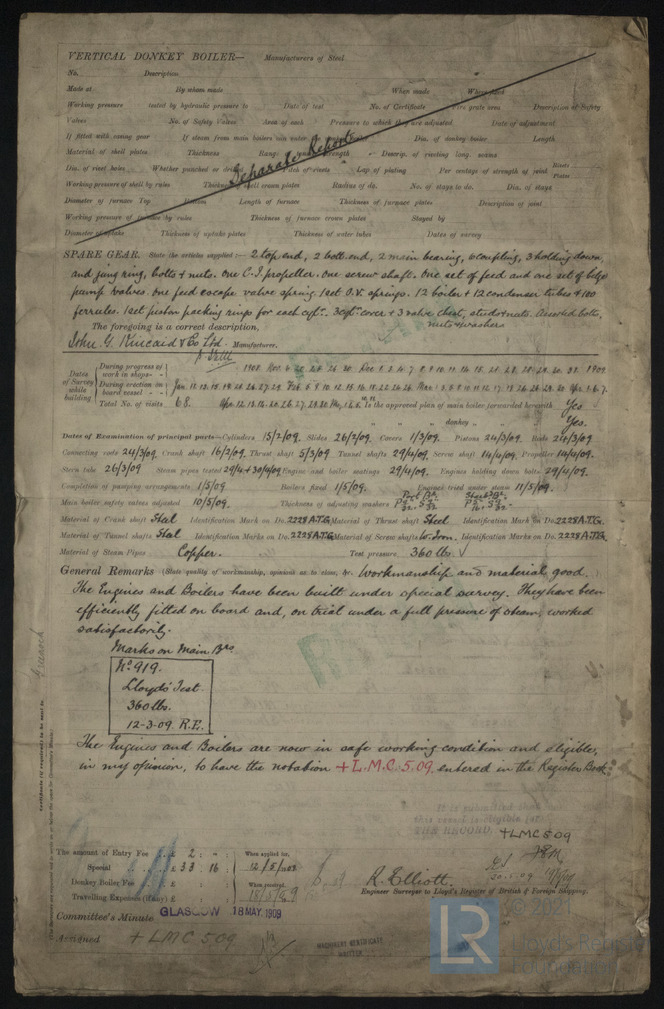 VERTICAL DONKEY BOILER— Manufacturers of Steel
No. Description
Made at By whom made When made Where fixed
Working pressure tested by hydraulic pressure to Date of test No. of Certificate Fire grate area Description of Safety
Valves No. of Safety Valves Area of each Pressure to which they are adjusted Date of adjustment
If fitted with easing gear If steam from main boilers can enter Dia. of donkey boiler Length
Material of shell plates Thickness Range strength Descrip. of riveting long. seams
Separate Report
Dia. of rivet holes Whether punched or drilled Pitch of rivets Lap of plating Per centage of strength of joint Rivets Plates
Working pressure of shell by rules Thickness crown plates Radius of do. No. of stays to do. Dia. of stays
Diameter of furnace Top Bottom Length of furnace Thickness of furnace plates Description of joint
Working pressure of furnace by rules Thickness of furnace crown plates Stayed by
Diameter of uptake Thickness of uptake plates Thickness of water tubes Dates of survey
SPARE GEAR. State the articles supplied:— 2 top end, 2 bott. end, 2 main bearing, 6 coupling, 3 holding down,
and jung ring, bolts & nuts. one C.I. propeller. one screw shaft. One set of feed and one set of bilge
pump valves. one feed escape valve spring. 1 set O.V. springs. 12 boiler & 12 condenser tubes & 100
ferrules. 1 set piston packing rings for each cylr. 3 cylr cover & 3 valve chest, studs & nuts. Assorted bolts,
nuts & washers
The foregoing is a correct description,
John G. Kincaid & Co Ltd. Manufacturer.
Dates of Survey while building
During progress of work in shops - - 1908
During erection on board vessel - - -
Total No. of visits 68. Is the approved plan of main boiler forwarded herewith Yes
" " " donkey " " " Yes.
Dates of Examination of principal parts—Cylinders 15/2/09. Slides 26/2/09. Covers 1/3/09. Pistons 24/3/09. Rods 24/3/09
Connecting rods 24/3/09. Crank shaft 16/2/09. Thrust shaft 5/3/09 Tunnel shafts 29/4/09. Screw shaft 14/4/09. Propeller 14/4/09.
Stern tube 26/3/09 Steam pipes tested 29/4 + 30/4/09 Engine and boiler seatings 29/4/09. Engines holding down bolts 29/4/09.
Completion of pumping arrangements 1/5/09 Boilers fixed 1/5/09. Engines tried under steam 11/5/09.
Main boiler safety valves adjusted 10/5/09. Thickness of adjusting washers Port Bt. Starb'd Bt.
Material of Crank shaft Steel Identification Mark on Do. 2228 A.T.G. Material of Thrust shaft Steel Identification Mark on Do. 2228 A.T.G.
Material of Tunnel shafts Steel Identification Marks on Do. 2228 A.T.G. Material of Screw shafts W. Iron. Identification Marks on Do. 2228 A.T.G.
Material of Steam Pipes Copper. Test pressure 360 lbs. ✓
General Remarks (State quality of workmanship, opinions as to class, &c. Workmanship and material good.
The Engines and Boilers have been built under special survey. They have been
efficiently fitted on board and, on trial under a full pressure of steam, worked
satisfactorily.
Marks on Main Brs
No. 919.
Lloyd's Test
360 lbs.
12-3-09. R.E.
The Engines and Boilers are now in safe working condition and eligible,
in my opinion, to have the notation + L.M.C. 5.09. entered in the Register Book.
THE RECORD + LMC 5.09
The amount of Entry Fee . . £ 2 : " : When applied for,
Special . . . £ 33 : 16 : 12/5/1909
Donkey Boiler Fee . . . £ : : When received,
Travelling Expenses (if any) £ : : 18/5/09
R. Elliott.
Engineer Surveyor to Lloyd's Register of British & Foreign Shipping.
Committee's Minute GLASGOW 18 MAY. 1909
Assigned + LMC 5.09
MACHINERY CERTIFICATE WRITTEN
Greenock
LR
© 2021
Lloyd's Register
Foundation